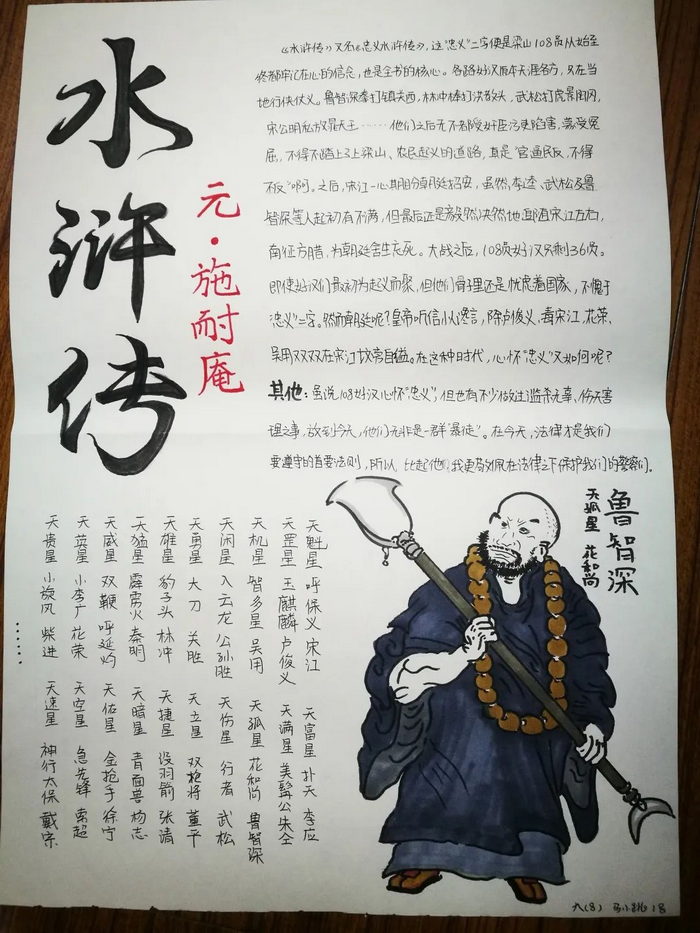 水浒传
元·施耐庵
《水浒传》又名《忠义水浒传》，这“忠义”二字便是梁山108员从始至
终都牢记在心的信念，也是全书的核心。各路好汉原本天涯各方，只在当
地行侠仗义。鲁智深拳打镇关西，林冲棒打洪教头，武松打虎景阳冈，
宋公明私放晁天王……他们之后无不都受奸臣污吏陷害，蒙受冤
屈，不得不踏上了上梁山、农民起义的道路，真是“官逼民反，不得
不反”啊。之后，宋江一心期盼朝廷招安，虽然李逵、武松及鲁
智深等人起初有不满，但最后还是毅然决然地跟随宋江左右，
南征方腊，为朝廷舍生忘死。大战之后，108员好汉只剩36员。
即使好汉们最初为起义而聚，但他们骨子里还是忧虑着国家，不愧于
“忠义”二字。然而朝廷呢？皇帝听信小人谗言，除卢俊义、毒宋江，花荣、
吴用双双在宋江坟旁自缢。在这种时代，心怀“忠义”又如何呢？
其他：虽说108好汉心怀“忠义”，但也有不少做过滥杀无辜、伤天害
理之事，放到今天，他们无非是一群“暴徒”。在今天，法律才是我们
要遵守的首要法则，所以，比起他们，我更敬佩在法律之下保护我们的警察们。
鲁智深
天孤星 花和尚
天魁星 呼保义 宋江
天罡星 玉麒麟 卢俊义
天机星 智多星 吴用
天闲星 入云龙 公孙胜
天勇星 大刀 关胜
天雄星 豹子头 林冲
天猛星 霹雳火 秦明
天威星 双鞭 呼延灼
天英星 小李广 花荣
天贵星 小旋风 柴进
天富星 扑天 李应
天满星 美髯公 朱仝
天孤星 花和尚 鲁智深
天伤星 行者 武松
天立星 双枪将 董平
天捷星 没羽箭 张清
天暗星 青面兽 杨志
天佑星 金抢手 徐宁
天空星 急先锋 索超
天速星 神行太保 戴宗
……
九(8)